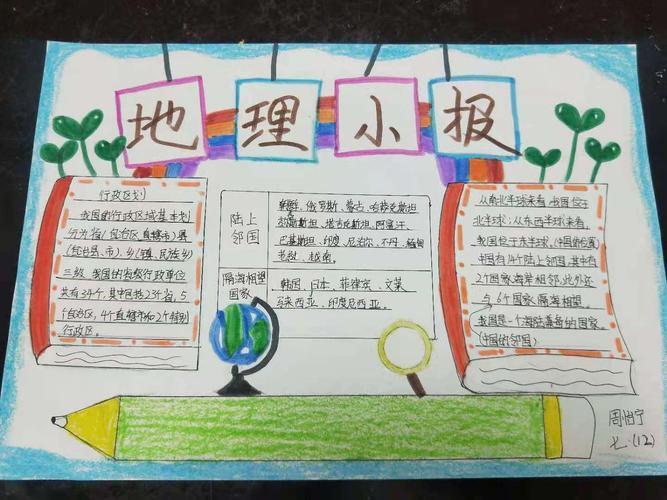 地理小报
行政区划
我国的行政区域基本划
分为省(自治区、直辖市)县
(自治县、市)、乡(镇、民族乡)
三级。我国的省级行政单位
共有34个,其中包括23个省,5
个自治区,4个直辖市和2个特别
行政区。
陆上
邻国
朝鲜、俄罗斯、蒙古、哈萨克斯坦
吉尔吉斯斯坦、塔吉克斯坦、阿富汗、
巴基斯坦、印度、尼泊尔、不丹、缅甸
老挝、越南。
隔海相望
国家
韩国、日本、菲律宾、文莱
马来西亚、印度尼西亚。
从南北半球来看,我国位于
北半球;从东西半球来看,
我国位于东半球。(中国的位置)
中国有14个陆上邻国,其中有
2个国家海岸相邻,此外还
与6个国家隔海相望。
我国是一个海陆兼备的国家
(中国的邻国)
周怡宁
七·(12)